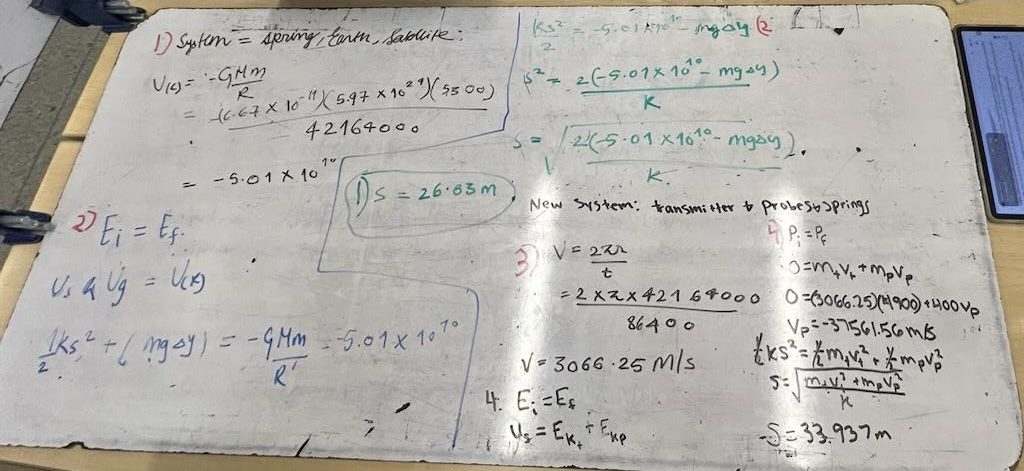 1) System = spring, Earth, Satellite:
U(r) = -GMm
R
= -(6.67 × 10⁻¹¹)(5.97 × 10²⁴)(5300)
42164000
= -5.01 × 10¹⁰
2) Ei = Ef.
Us & Ug = U(r)
1/2 ks² + (mgΔy) = -GMm/R = -5.01 × 10¹⁰
ks²/2 = -5.01×10¹⁰ - mgΔy (2
s² = 2(-5.01 × 10¹⁰ - mgΔy)
K
s = √2(-5.01 × 10¹⁰ - mgΔy)
K.
1) S = 26.63 m
New System: transmitter & probes & springs
3) V = 2πr
t
= 2 × π × 42164000
86400
V = 3066.25 m/s
4. Ei = Ef
Us = EKt + EKp
4) Pi = Pf
0 = mtVt + mpVp
0 = (3066.25)(4900) + 400Vp
Vp = -37561.56 m/s
½ks² = ½mtVt² + ½mpVp²
S = √mtVt² + mpVp²
K
S = 33.937m